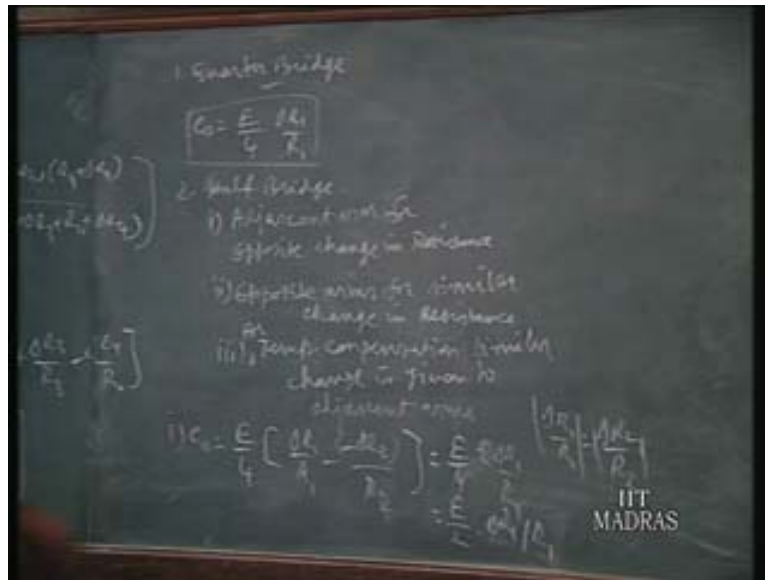 1. Quarter Bridge
e₀ = E/4 ΔR₁/R₁
2. Half Bridge
i) Adjacent arms for
opposite change in Resistance
ii) Opposite arms for similar
change in Resistance
iii) For Temp. compensation similar
change is given to
adjacent arms
i) e₀ = E/4 [ΔR₁/R₁ - (-ΔR₂)/R₂] = E/4 2ΔR₁/R₁ |ΔR₁/R₁| = |ΔR₂/R₂|
= E/2 ΔR₁/R₁
IIT
MADRAS